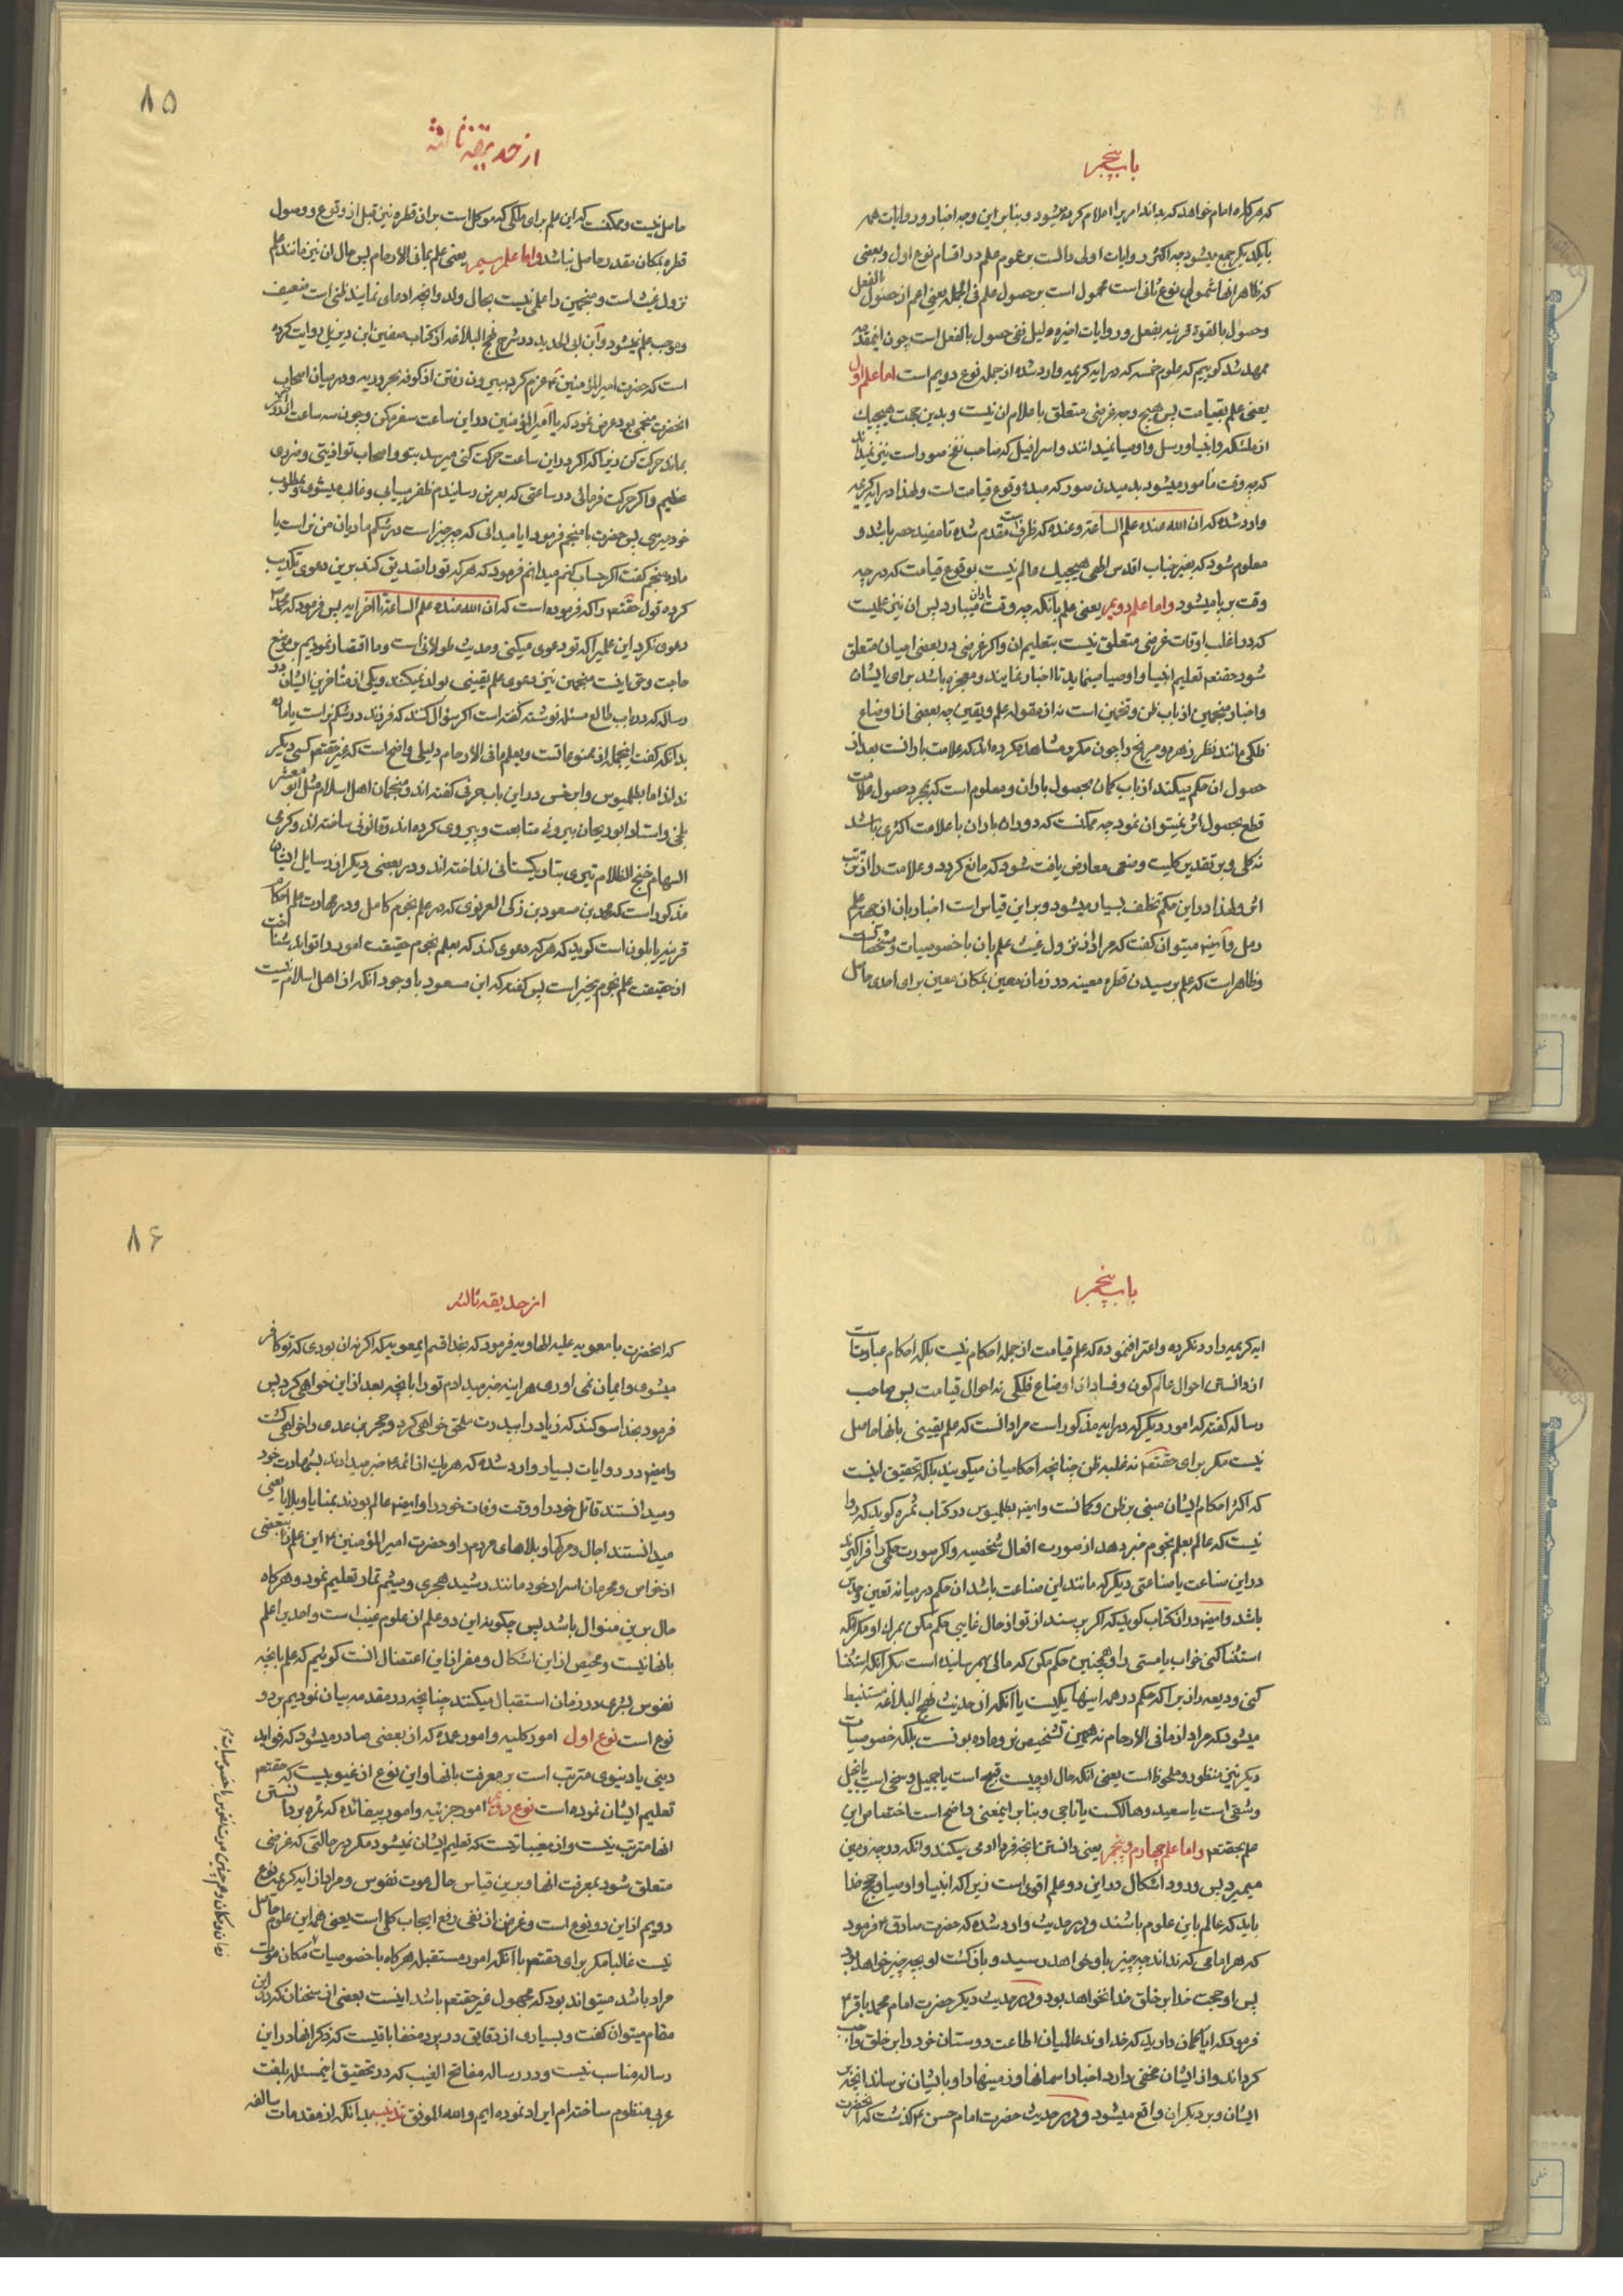 باب پنجم
که هرگاه امام خواهد که بداند امریرا اعلام کرده میشود و بنابر این وجه اخبار و روایات همه
بایکدیکر جمع میشود چه اکثر روایات اولی دالست بر عموم علم در اقسام نوع اول و بعضی
که ظاهر انها شمول نوع ثانی است محمول است بر حصول علم فی الجمله یعنی اعم از حصول بالفعل
وحصول بالقوة قریبه بفعل و روایات اخیره دلیل نفی حصول بالفعل است چون اینمقدمه
ممهد شد کوییم که علوم خمسه که در ایه کریمه وارد شده از جمله نوع دویم است اما علم اول
یعنی علم بقیامت پس هیچ وجه غرضی متعلق باعلام ان نیست و بدین جهت هیچیک
از ملئکه و انبیا و رسل و اوصیا نمیدانند و اسرافیل که صاحب نفخ صور است نیز نمیداند
که چه وقت مأمور میشود بدمیدن صور که مبدء وقوع قیامت است ولهذا در ایه کریمه
وارد شده که ان الله عنده علم الساعة و عنده که ظرف است مقدم شده تا مفید حصر باشد و
معلوم شود که بغیر جناب اقدس الهی هیچیک عالم نیست بوقوع قیامت که در چه
وقت برپا میشود واما علم دویم یعنی علم بانکه چه وقت باران میبارد پس ان نیز علمیست
که در اغلب اوقات غرضی متعلق نیست بتعلیم ان و اکر غرضی در بعضی احیان متعلق
شود حقتعم تعلیم انبیا و اوصیا مینماید تا اخبار نمایند و معجزه باشد برای ایشان
واخبار منجمین از باب ظن و تخمین است نه از مقوله علم و یقین چه بعضی از اوضاع
فلکی مانند نظر زهره و مریخ را چون مکرر مشاهده کرده اند که علامت بارانست بعد از
حصول ان حکم میکنند از باب کمان بحصول باران و معلوم است که بمجرد حصول علامت
قطع بحصول اثر نمیتوان نمود چه ممکنست که دوران باران با علامت اکثری باشد
نه کلی و بر تقدیر کلیت وضعی معارض یافت شود که مانع کردد و علامت را از ترتب
اثر ولهذا در این حکم تخلف بسیار میشود و بر این قیاس است اخبار بان از جهة علم
رمل وایضا میتوان کفت که مراد از نزول غیث علم بان با خصوصیات و مشخصات است
وظاهر است که علم برسیدن قطره معینه در زمان معین بمکان معین برای احدی حاصل
۸۵
از حدیقه ثالثه
حاصل نیست و ممکنست که این علم برای ملکی که موکل است بران قطره نیز قبل از وقوع و وصول
قطره بمکان مقدر حاصل نباشد واما علم سیم یعنی علم بمافی الارحام پس حال ان نیز مانند علم
نزول غیث است و منجمین را علمی نیست بحال ولد و انچه ادعای نمایند ظنی است ضعیف
وموجب علم نمیشود وابن ابی الحدید در شرح نهج البلاغه از کتاب صفین ابن دیزیل روایت کرده
است که حضرت امیرالمؤمنین ع عزم کرد بیرون رفتن از کوفه بحروریه و در میان اصحاب
انحضرت منجمی بود عرض نمود که یا امیرالمؤمنین در این ساعت سفر مکن و چون سه ساعت از روز
بماند حرکت کن زیرا که اکر در این ساعت حرکت کنی میرسد بتو و اصحاب تو اذیتی و ضرری
عظیم و اکر حرکت فرمائی در ساعتی که بعرض رسانیدم ظفر مییابی و غالب میشوی و بمطلوب
خود میرسی پس حضرت با منجم فرمود ایا میدانی که چه چیز است در شکم مادیان من نر است یا
ماده منجم کفت اکر حساب کنم میدانم فرمود که هر که تو را تصدیق کند برین دعوی تکذیب
کرده قول حقتعم را که فرموده است که ان الله عنده علم الساعة تا اخر ایه پس فرمود که محمد ص
دعوی نکرد این علم را که تو دعوی میکنی و حدیث طولانی است و ما اقتصار نمودیم بر موضع
حاجت و حق اینست منجمین نیز دعوی علم یقینی بدان نمیکنند و یکی از متاخرین ایشان در
رساله که در باب طالع مسئله نوشته کفته است اکر سؤال کنند که فرزند در شکم نر است یا ماده
بدانکه کفت اینجمله از ممنوعاتست و یعلم ما فی الارحام دلیلی واضح است که غیر حقتعم کسی دیکر
نداند اما بطلمیوس و ابرخس در این باب حرفی کفته اند و منجمان اهل اسلام مثل ابو معشر
بلخی و استاد ابوریحان بیرونی متابعت و پیروی کرده اند و قانونی ساخته اند و کرمی
السهام خنج الظلام تیری بتاریکستانی انداخته اند و در بعضی دیکر از رسایل ایشان
مذکور است که محمد بن مسعود بن زکی الغزنوی که در علم نجوم کامل و در مهارت علم احکام
قرینه یابلون است کوید که هر که دعوی کند که بعلم نجوم حقیقت امور را تواند شناخت
از حقیقت علم نجوم بیخبر است پس کفته که ابن مسعود با وجود انکه از اهل اسلام نیست
باب پنجم
ایه کریمه را رد نکرده و اعتراف نموده که علم قیامت از جمله احکام نیست بلکه احکام عبارتست
از دانستن احوال عالم کون و فساد از اوضاع فلکی نه احوال قیامت پس صاحب
رساله کفته که امور دیکر که در ایه مذکور است مراد انست که علم یقینی بانها حاصل
نیست مکر برای حقتعم نه غلبه ظن چنانچه احکامیان میکویند بلکه تحقیق اینست
که اکثر احکام ایشان مبنی بر ظن و کمانست وایضا بطلمیوس در کتاب ثمره کوید که روا
نیست که عالم بعلم نجوم خبر دهد از صورت افعال شخصیه و اکر صورت حکمی را فراکیرند
در این صناعت یا صناعتی دیکر که مانند این صناعت باشد ان حکم در میانه تعین و حدس
باشد وایضا در ان کتاب کوید که اکر پرسند از تو از حال غایبی حکم مکن بمرک او مکر انکه
استثنا کنی خواب یا مستی را و همچنین حکم مکن که مالی بهم رسانیده است مکر انکه استثنا
کنی ودیعه را زیرا که حکم در همه اینها یکیست یا انکه از حدیث نهج البلاغه مستنبط
میشود که مراد از ما فی الارحام نه همین تشخیص نر و ماده بودنست بلکه خصوصیات
دیکر نیز منظور و ملحوظ است یعنی انکه حال او چیست قبیح است یا جمیل و سخی است یا بخیل
وشقی است یا سعید و هالکست یا ناجی و بنابر اینمعنی واضح است اختصاص این
علم بحقتعم واما علم چهارم و پنجم یعنی دانستن انچه فردا ادمی میکند و انکه در چه زمین
میمیرد پس ورود اشکال در این دو علم اقوی است زیرا که انبیا و اوصیا و حجج خدا
باید که عالم باین علوم باشند و در حدیث وارد شده که حضرت صادق ع فرمود
که هر امامی که نداند چه چیز باو خواهد رسید و بازکشت او بچه چیز خواهد بود
پس او حجت خدا بر خلق خدا نخواهد بود و در حدیث دیکر حضرت امام محمد باقر ع
فرمود که ایا کمان دارید که خداوند عالمیان اطاعت دوستان خود را بر خلق واجب
کرداند و از ایشان مخفی دارد اخبار اسمانها و زمینها را و بایشان نرساند انچه بر
ایشان و بر دیکران واقع میشود و در حدیث حضرت امام حسن ع کذشت که انحضرت
۸۶
از حدیقه ثالثه
که انحضرت با معویه علیه الهاویه فرمود که بخدا قسم ایمعویه که اکر نه ان بودی که تو کافر
میشوی و ایمان نمی اوری هراینه خبر میدادم تو را بانچه بعد از این خواهی کرد پس
فرمود بخدا سوکند که زیاد را بپدرت ملحق خواهی کرد و حجر بن عدی را خواهی کشت
وایضا در روایات بسیار وارد شده که هر یک از ائمه ع خبر میدادند بشهادت خود
ومیدانستند قاتل خود را و وقت وفات خود را وایضا عالم بودند بمنایا و بلایا یعنی
میدانستند اجال و مرکها و بلاهای مردم را و حضرت امیرالمؤمنین ع این علم را ببعضی
از خواص و محرمان اسرار خود مانند رشید هجری و میثم تمار تعلیم نمود و هرکاه
حال برین منوال باشد پس چکونه این دو علم از علوم غیب است و احدیرا علم
بانها نیست و محیص از این اشکال و مفر از این اعتضال انست کوییم که علم بانچه
نفوس بشری در زمان استقبال میکنند چنانچه در مقدمه بیان نمودیم بر دو
نوع است نوع اول امور کلیه و امور عمده که از بعضی صادر میشود که فواید
دینی یا دنیوی مترتب است بر معرفت بانها و این نوع از غیوبیست که حقتعم
تعلیم ایشان نموده است نوع دویم امور جزئیه و امور بیفائده که ثمره بر دانستن
انها مترتب نیست و از مغیباتیست که تعلیم ایشان نمیشود مکر در حالتی که غرضی
متعلق شود بمعرفت انها و برین قیاس حال موت نفوس و مراد از ایه کریمه نوع
دویم از این دو نوع است و غرض از نفی رفع ایجاب کلی است یعنی همه این علوم حاصل
نیست غالبا مکر برای حقتعم یا انکه امور مستقبله هرکاه با خصوصیات مکان موت
مراد باشد میتواند بود که مجهول غیر حقتعم باشد اینست بعضی از سخنان که در این
مقام میتوان کفت و بسیاری از دقایق در پرده خفا باقیست که ذکر انها در این
رساله مناسب نیست و در رساله مفاتح الغیب که در تحقیق اینمسئله بلغت
عربی منظوم ساخته ام ایراد نموده ایم والله الموفق تذنیب بدانکه از مقدمات سالفه